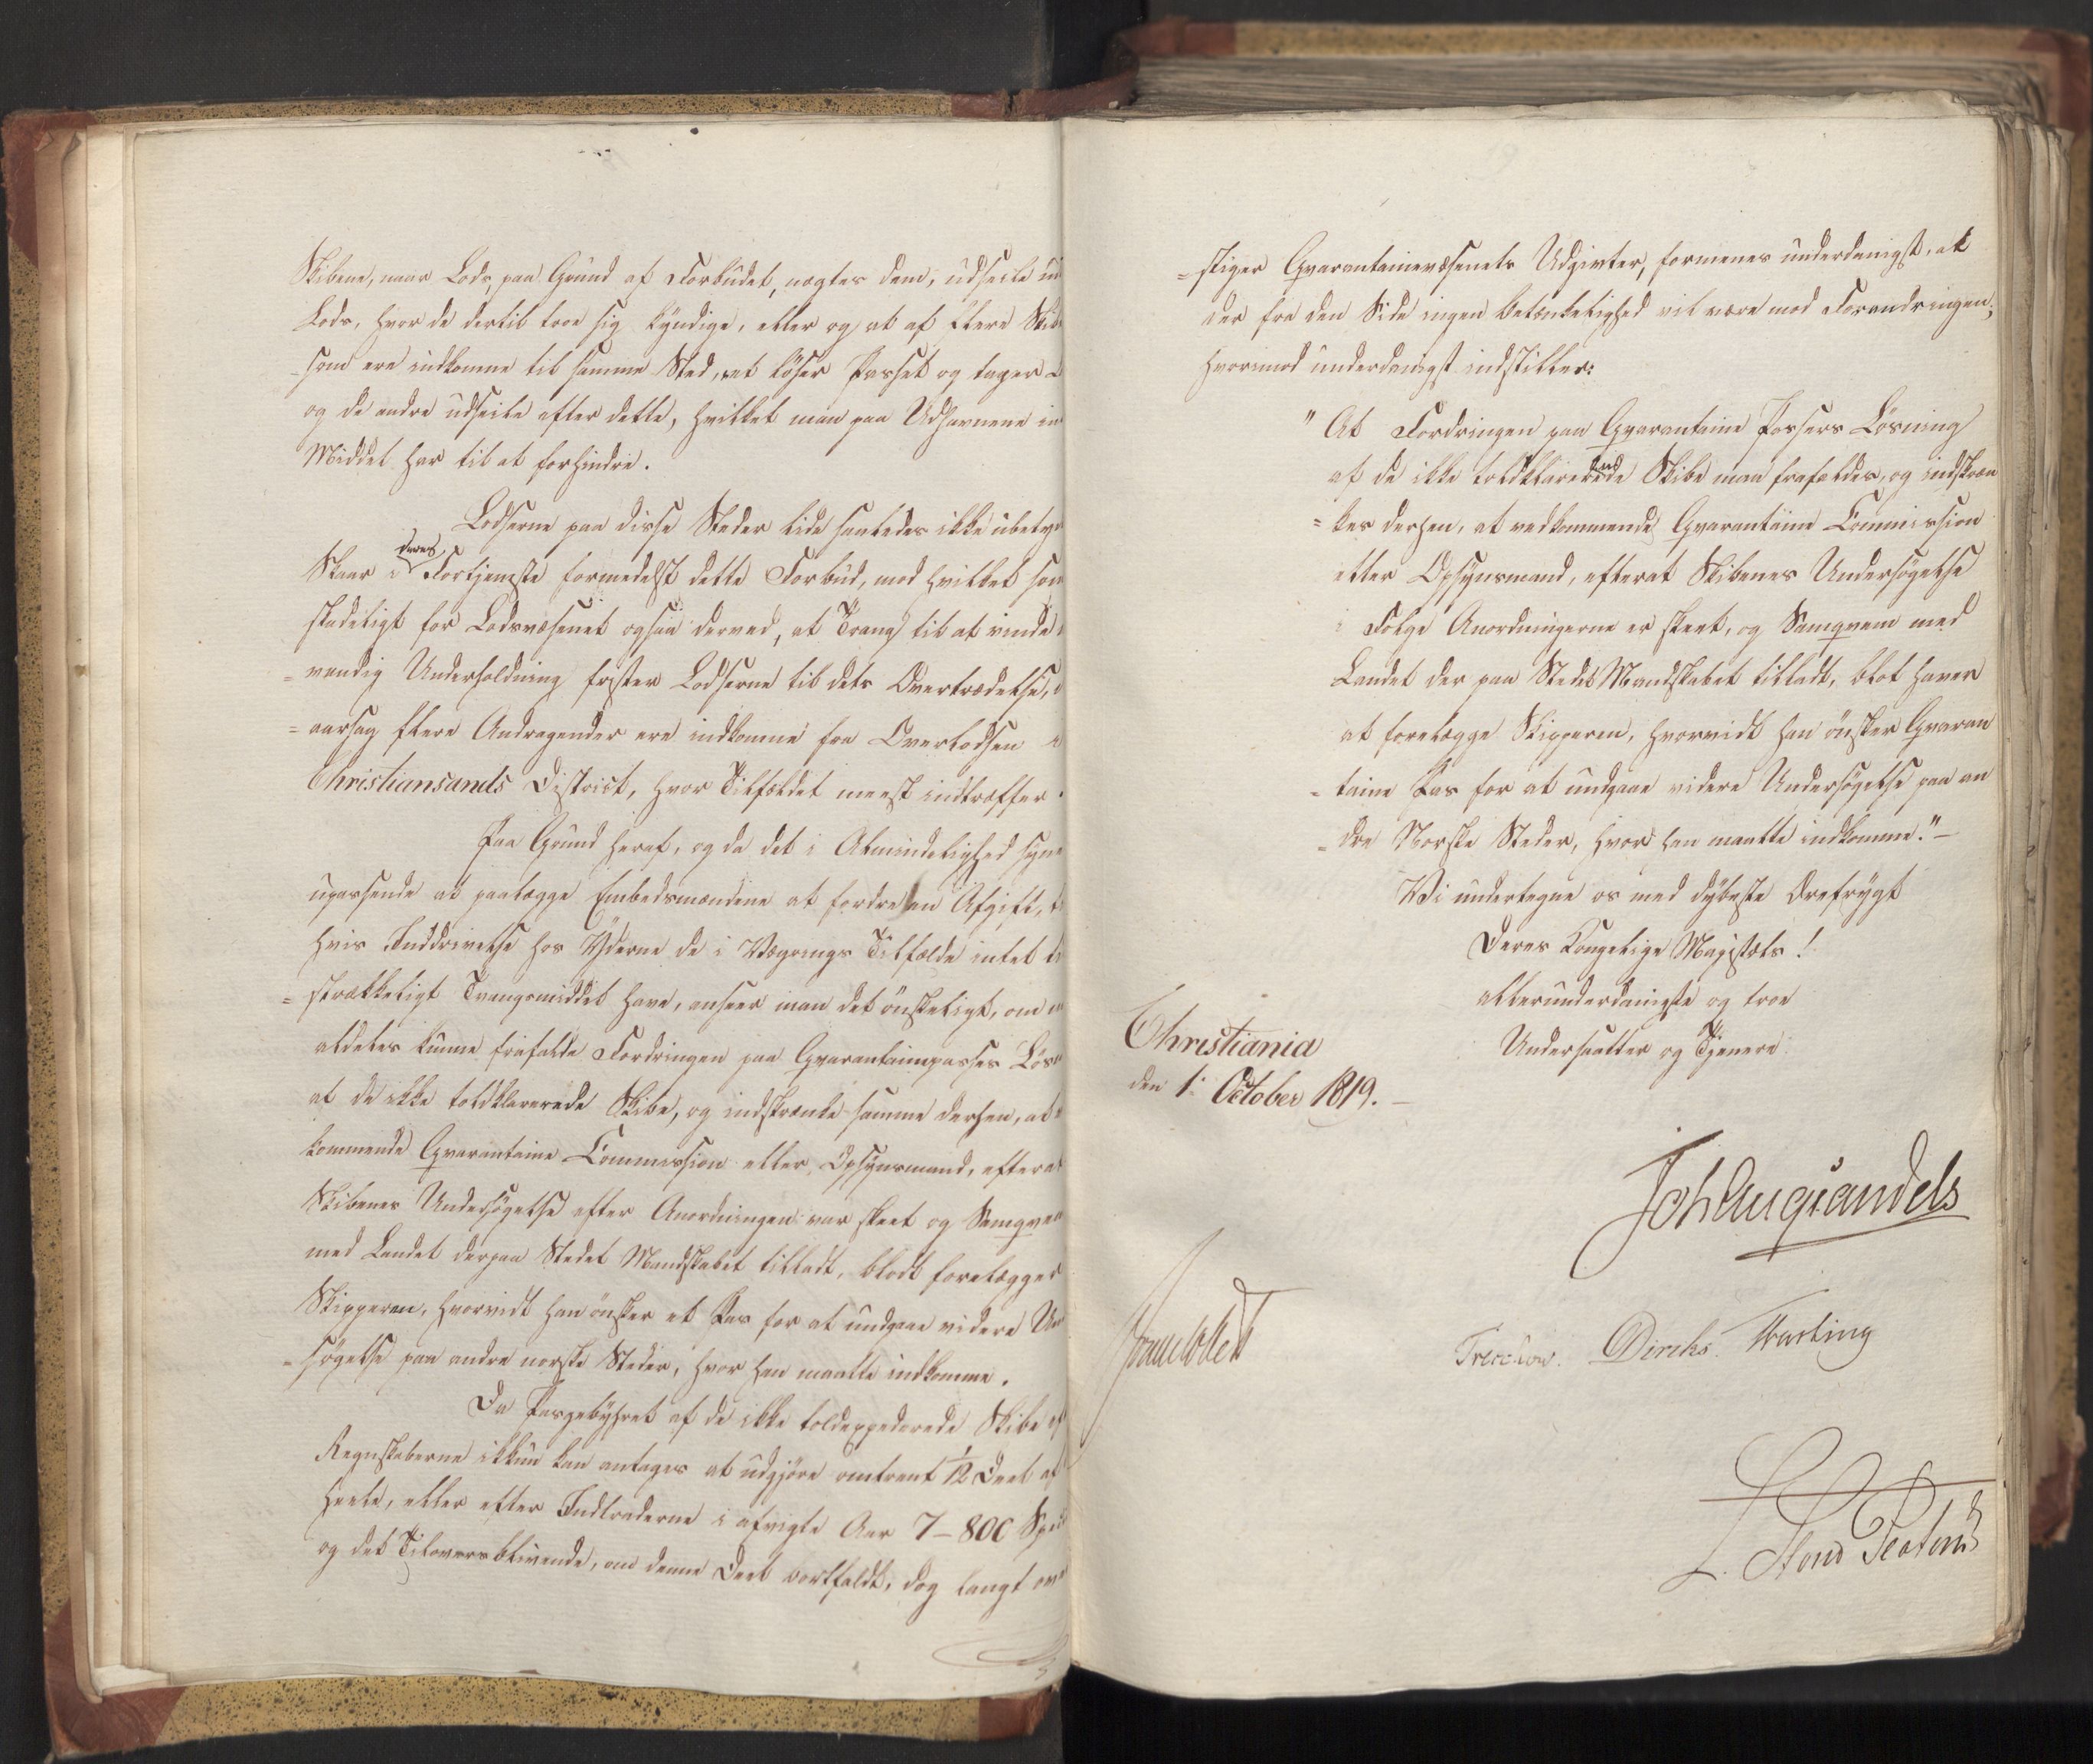 Skibene, naar Lods, paa Grund af Forbudet, nægtes dem, udseile ud
Lods, hvor de dertil troe sig kyndige, eller og at af flere Skib
som ere indkomne til samme Sted, et löser Passet og tager
og de andre udseile efter dette, hvilket man paa Udhavnene in
Middel har til at forhindre.
Lodserne paa disse Steder lide saaledes ikke ubety
Skaar i deres Fortjeneste formedelst dette Forbud, mod hvilket som
skadeligt for Lodsvæsenet ogsaa derved, at Trang til at vinde
=vendig Underholdning frister Lodserne til dets Overtrædelse,
=aarsag flere Andragender ere indkomne fra Overlodsen
Christiansands District, hvor Tilfældet meest indtræffer.
Paa Grund heraf, og da det i Almindelighed syne
upassende at paalægge Embedsmændene at fordre en Afgift,
hvis Inddrivelse hos Yderne de i Vægrings Tilfælde intet ti
=strækkeligt Tvangsmiddel have, anseer man det önskeligt, om
aldeles kunne frafalde Fordringen paa Qvarantainepasses Lös
af de ikke toldklarerede Skibe, og indskrænke samme derhen, at
kommende Qvarantaine Commission eller Opsynsmand, efterat
Skibenes Undersögelse efter Anordningen var skeet og Samqvem
med Landet derpaa Stedet Mandskabet tilladt, blodt forelægges
Skipperen, hvorvidt han önsker et Pas for at undgaae videre Un
=sögelse paa andre norske Steder, hvor han maatte indkomme.
Da Pasgebyhret af de ikke toldexpederede Skibe ef
Regnskaberne ikkun kan antages at udgjöre omtrent 1/12 Deel af
Heele, eller efter Indtraderne i afvigte Aar 7–800 Spe
og det Tiloversblivende, om denne Deel bortfaldt, dog langt ove
=stiger Qvarantainevæsenets Udgivter, formenes underdanigst, at
der fra den Side ingen Betænkelighed vil være mod Forandringen;
hvorimod underdanigst indstilles:
"At Fordringen paa Qvarantaine Passers Lösning
af de ikke toldklarerende Skibe maa frafaldes, og indskræn
=kes derhen, at vedkommende Qvarantaine Commission
eller Opsynsmand, efterat Skibenes Undersögelse
i Fölge Anordningerne er skeet, og Samqvem med
Landet der paa Stedet Mandskabet tilladt, blot haver
at forelægge Skipperen, hvorvidt han önsker Qvaran
=taine Pas for at undgaae videre Undersögelse paa an
=dre Norske Steder, hvor han maatte indkomme."—
Vi undertegne os med dybeste Ærefrygt
Deres Kongelige Majestæts!
allerunderdanigste og troe
Undersaatter og Tjenere
Christiania
den 1. October 1819.—
Joh Aug Sandels
Treschow. Diriks. Fasting
L. Stoud Platou